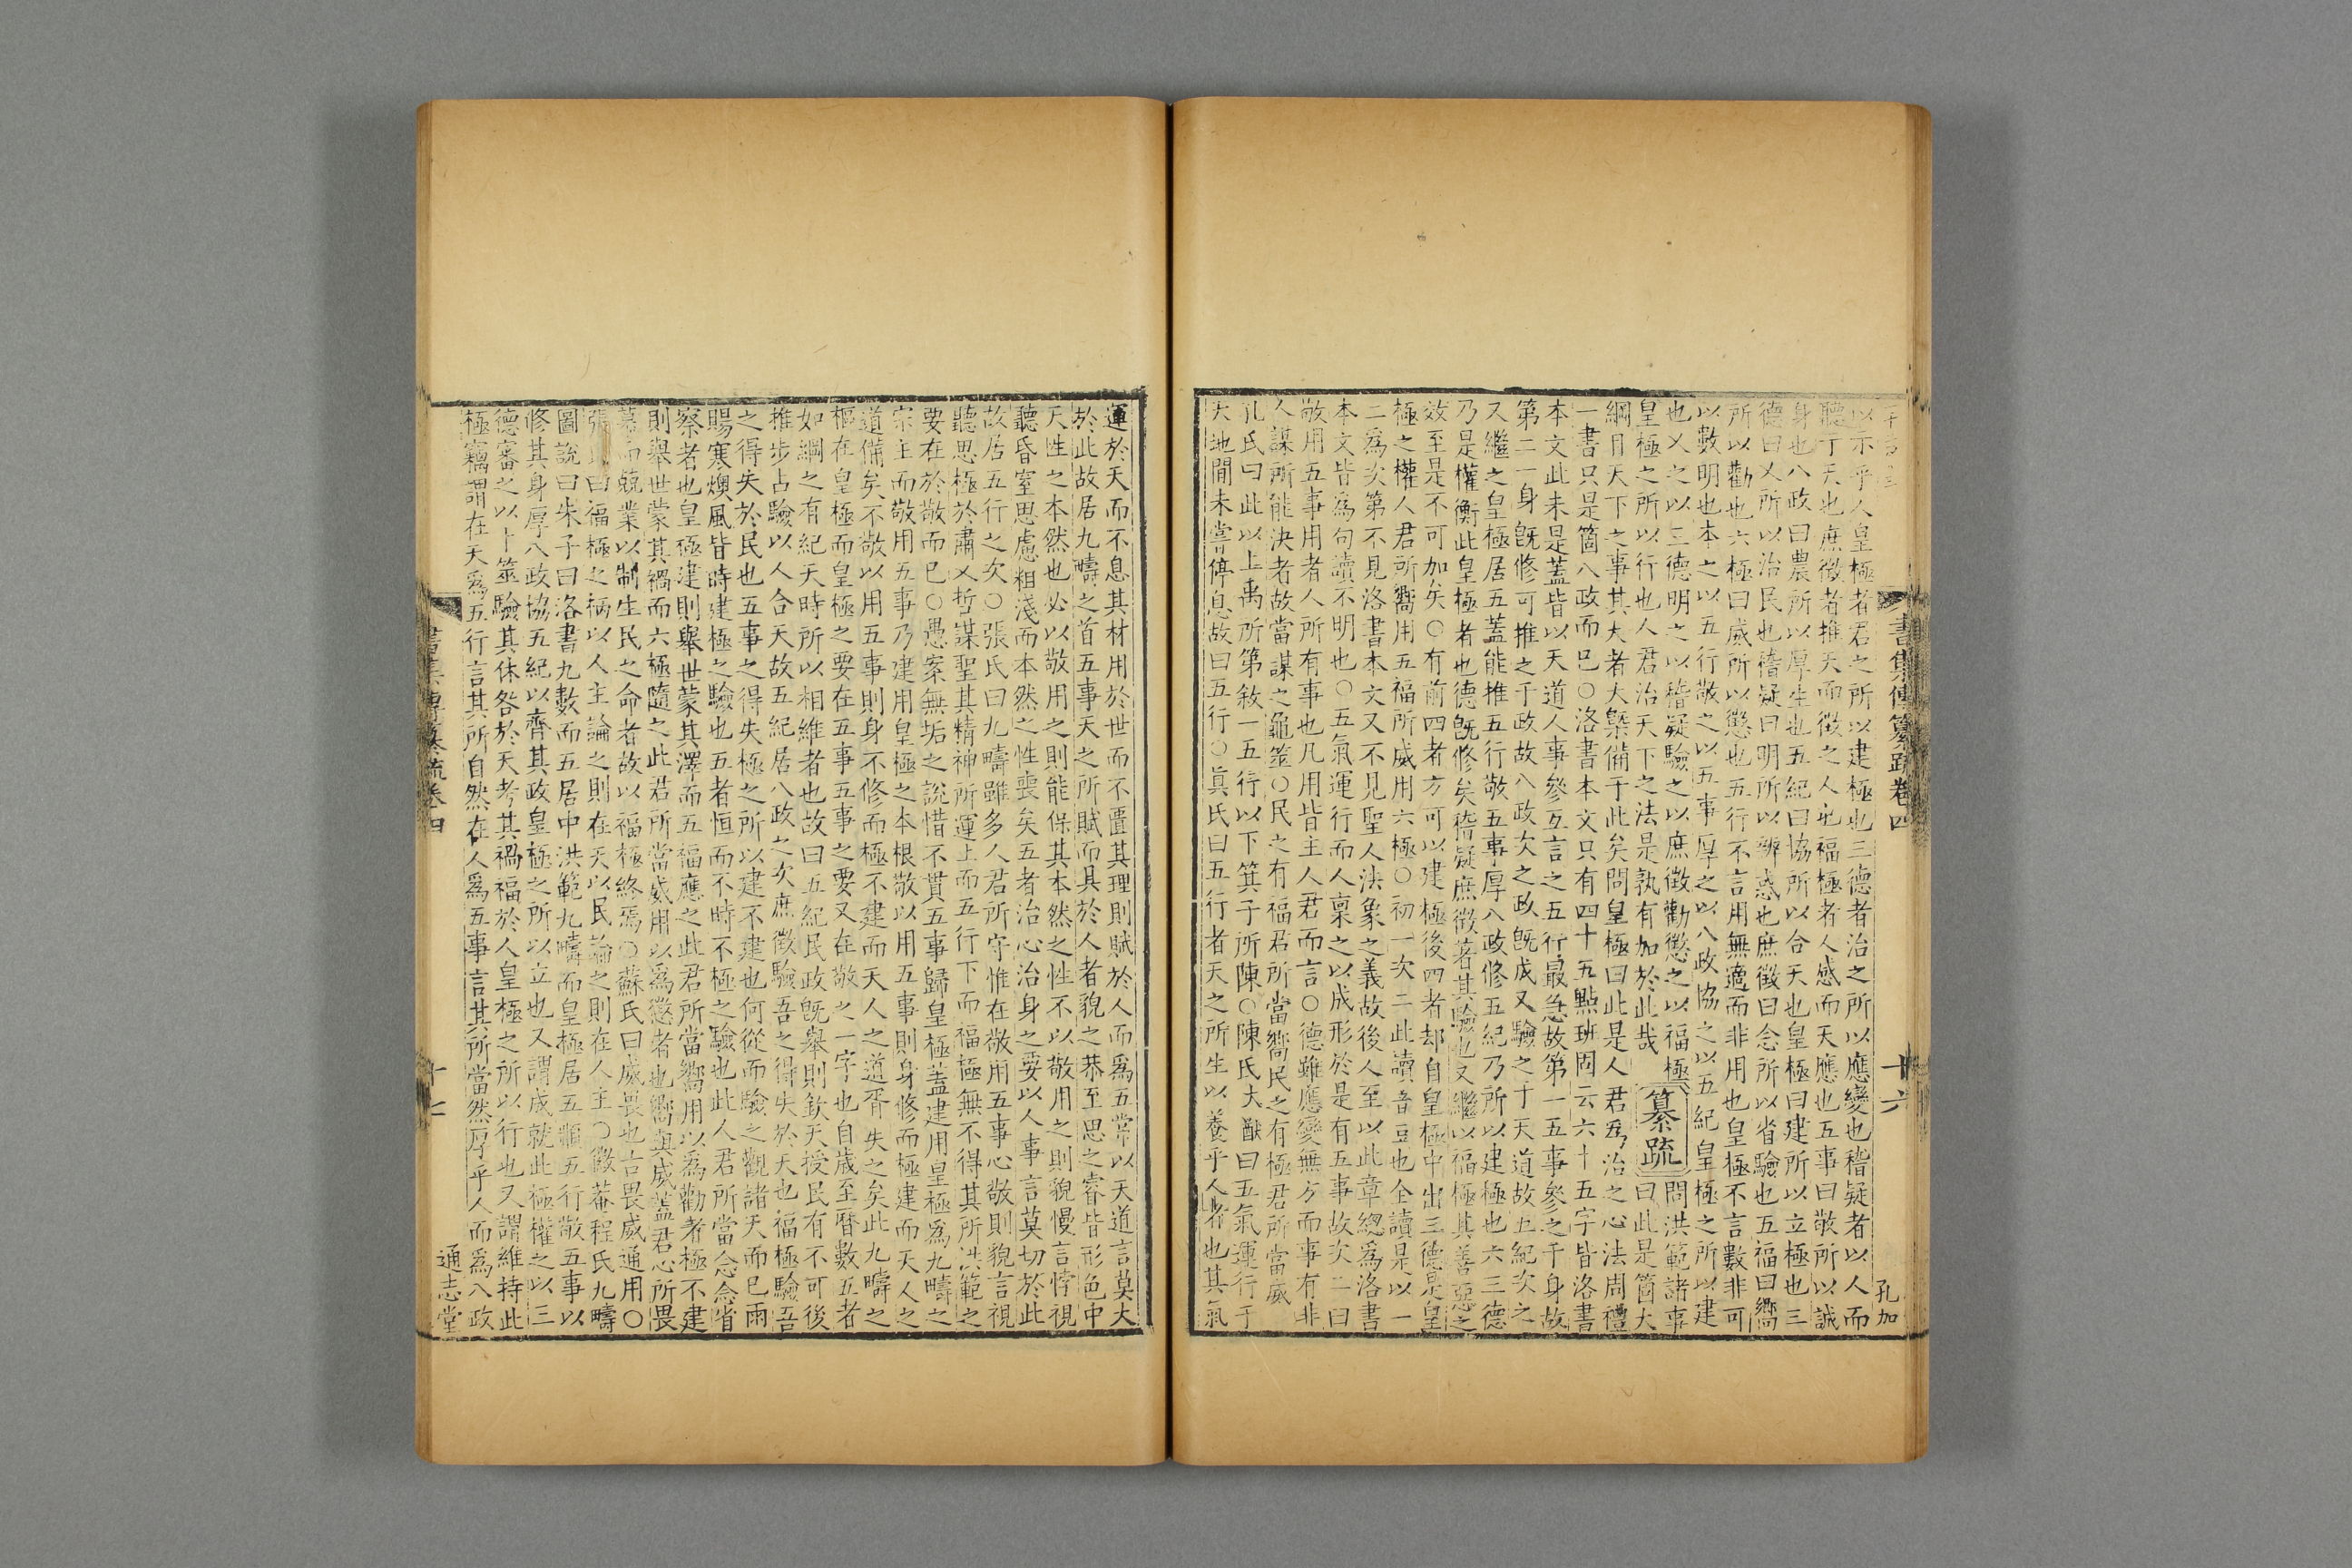 書集傳纂疏卷四
十六
孔加
以示乎人皇極者君之所以建極也三德者治之所以應變也稽疑者以人而
聽于天也庶徵者推天而徵之人也福極者人感而天應也五事曰敬所以誠
身也八政曰農所以厚生也五紀曰協所以合天也皇極曰建所以立極也三
德曰乂所以治民也稽疑曰明所以辨惑也庶徵曰念所以省驗也五福曰嚮
所以勸也六極曰威所以懲也五行不言用無適而非用也皇極不言數非可
以數明也本之以五行敬之以五事厚之以八政協之以五紀皇極之所以建
也乂之以三德明之以稽疑驗之以庶徵勸懲之以福極
皇極之所以行也人君治天下之法是孰有加於此哉
纂疏
問洪範諸事
曰此是箇大
綱目天下之事其大者大槩備于此矣問皇極曰此是人君爲治之心法周禮
一書只是箇八政而已○洛書本文只有四十五點班固云六十五字皆洛書
本文此未是蓋皆以天道人事參互言之五行最急故第一五事參之于身故
第二一身旣修可推之于政故八政次之政旣成又驗之于天道故五紀次之
又繼之皇極居五蓋能推五行敬五事厚八政修五紀乃所以建極也六三德
乃是權衡此皇極者也德旣修矣稽疑庶徵著其驗也又繼以福極其善惡之
效至是不可加矣○有前四者方可以建極後四者却自皇極中出三德是皇
極之權人君所嚮用五福所威用六極○初一次二此讀音豆也仝讀是以一
二爲次第不見洛書本文又不見聖人法象之義故後人至以此章總爲洛書
本文皆爲句讀不明也○五氣運行而人禀之以成形於是有五事故次二曰
敬用五事用者人所有事也凡用皆主人君而言○德雖應變無方而事有非
人謀所能決者故當謀之龜筮○民之有福君所當嚮民之有極君所當威
孔氏曰此以上禹所第敘一五行以下箕子所陳○陳氏大猷曰五氣運行于
天地間未嘗停息故曰五行○眞氏曰五行者天之所生以養乎人者也其氣
運於天而不息其材用於世而不匱其理則賦於人而爲五常以天道言莫大
於此故居九疇之首五事天之所賦而具於人者貌之恭至思之睿皆形色中
天性之本然也必以敬用之則能保其本然之性不以敬用之則貌慢言悖視
聽昏窒思慮粗淺而本然之性喪矣五者治心治身之要以人事言莫切於此
故居五行之次○張氏曰九疇雖多人君所守惟在敬用五事心敬則貌言視
聽思極於肅乂哲謀聖其精神所運上而五行下而福極無不得其所洪範之
要在於敬而已○愚案無垢之說惜不貫五事歸皇極蓋建用皇極爲九疇之
宗主而敬用五事乃建用皇極之本根敬以用五事則身修而極建而天人之
道備矣不敬以用五事則身不修而極不建而天人之道胥失之矣此九疇之
樞在皇極而皇極之要在五事五事之要又在敬之一字也自歲至曆數五者
如綱之有紀天時所以相維者也故曰五紀民政旣舉則欽天授民有不可後
推步占驗以人合天故五紀居八政之次庶徵驗吾之得失於天也福極驗吾
之得失於民也五事之得失極之所以建不建也何從而驗之觀諸天而已雨
暘寒燠風皆時建極之驗也五者恒而不時不極之驗也此人君所當念念省
察者也皇極建則舉世蒙其澤而五福應之此君所當嚮用以爲勸者極不建
則舉世蒙其禍而六極隨之此君所當威用以爲懲者也嚮與威蓋君心所畏
慕而兢業以制生民之命者故以福極終焉○蘇氏曰威畏也古畏威通用○
張氏曰福極之柄以人主論之則在天以民論之則在人主○徽菴程氏九疇
圖說曰朱子曰洛書九數而五居中洪範九疇而皇極居五順五行敬五事以
修其身厚八政協五紀以齊其政皇極之所以立也又謂成就此極權之以三
德審之以卜筮驗其休咎於天考其禍福於人皇極之所以行也又謂維持此
極竊謂在天爲五行言其所自然在人爲五事言其所當然厚乎人而爲八政
書集傳纂疏卷四
十七
通志堂